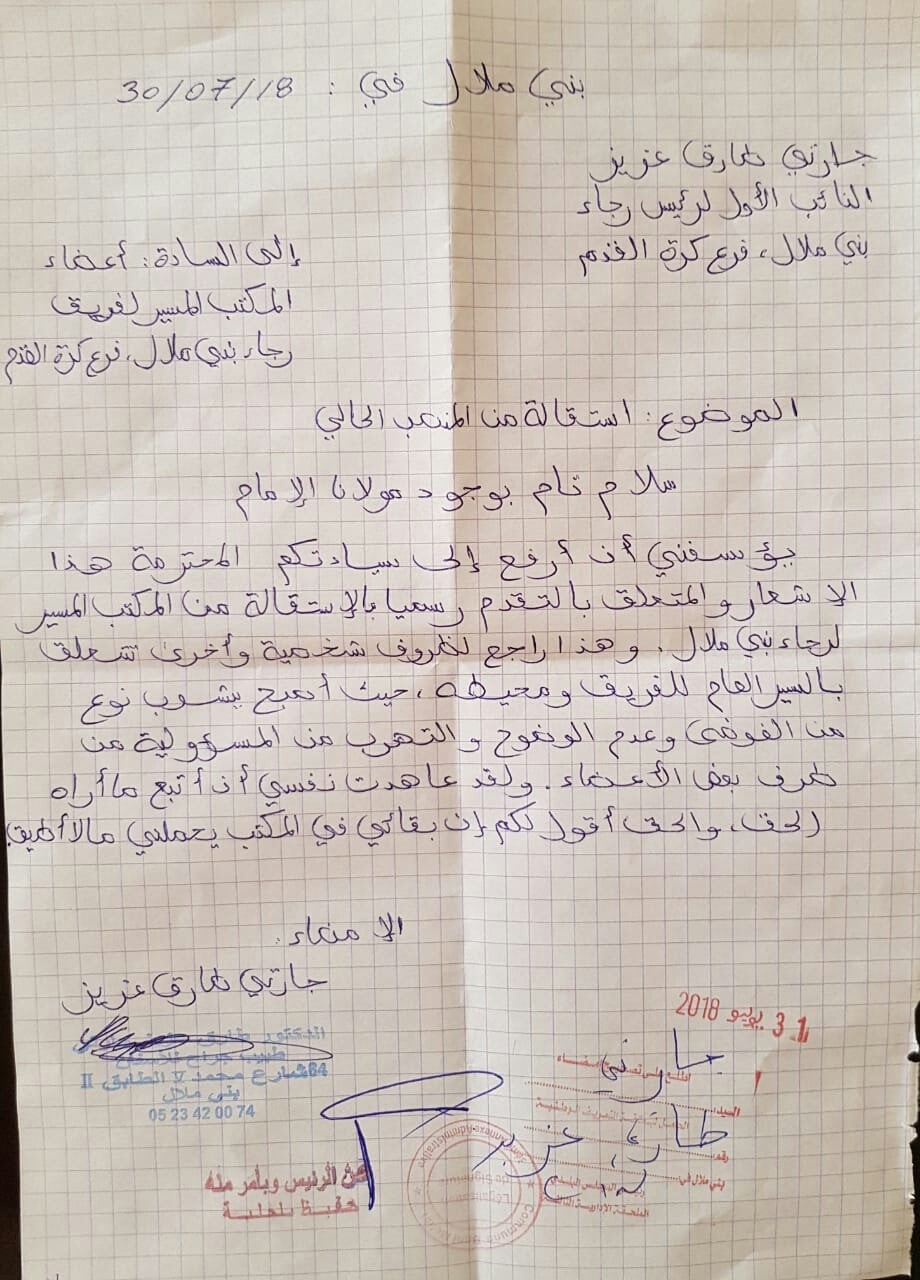 بني ملال في : 30/07/18
جارتي طارق عزيز
النائب الأول لرئيس رجاء
بني ملال، فرع كرة القدم
إلى السادة: أعضاء
المكتب المسير لفريق
رجاء بني ملال، فرع كرة القدم
الموضوع: استقالة من المنصب الحالي
سلام تام بوجود مولانا الإمام
يؤسفني أن أرفع إلى سيادتكم المحترمة هذا
الإشعار والمتعلق بالتقدم رسميا بالإستقالة من المكتب المسير
لرجاء بني ملال، وهذا راجع لظروف شخصية وأخرى تتعلق
بالسير العام للفريق ومحيطه، حيث أصبح يشوب نوع
من الفوضى وعدم الوضوح والتهرب من المسؤولية من
طرف بعض الأعضاء. ولقد عاهدت نفسي أن أتبع ما أراه
الحق، والحق أقول لكم إن بقائي في المكتب يحملني مالا أطيق
الإمضاء.
جارتي طارق عزيز
الدكتور طارق
طبيب جراح للأسنان
شارع محمد V الطابق II
بني ملال
05 23 42 00 74
31 يوليو 2018
جارتي
السيد
طارق عزيز
رقم
بني ملال في
الملحقة الإدارية
عن الرئيس وبأمر منه
حفيظ بلحلية